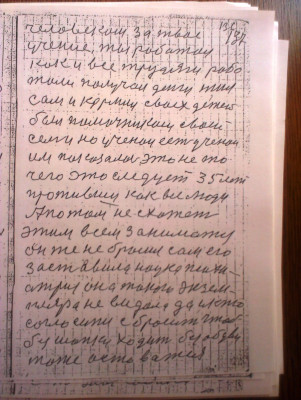 человеком за твое
учение. ты работал
как и все трудяги рабо
тали получал деньги жил
сам и кормил своих детей
был помощником своей
семи но ученая
им показалось это не то
чего это следует 35 лет
проживши как вси люди
А потом не схотел
этим всем заниматся
он же не бросил сам его
заставила наука психи-
атрия она такого экзем-
пляра не видала да
согласити сбросить
бу шапки ходит бу обзву
тоже остоватся